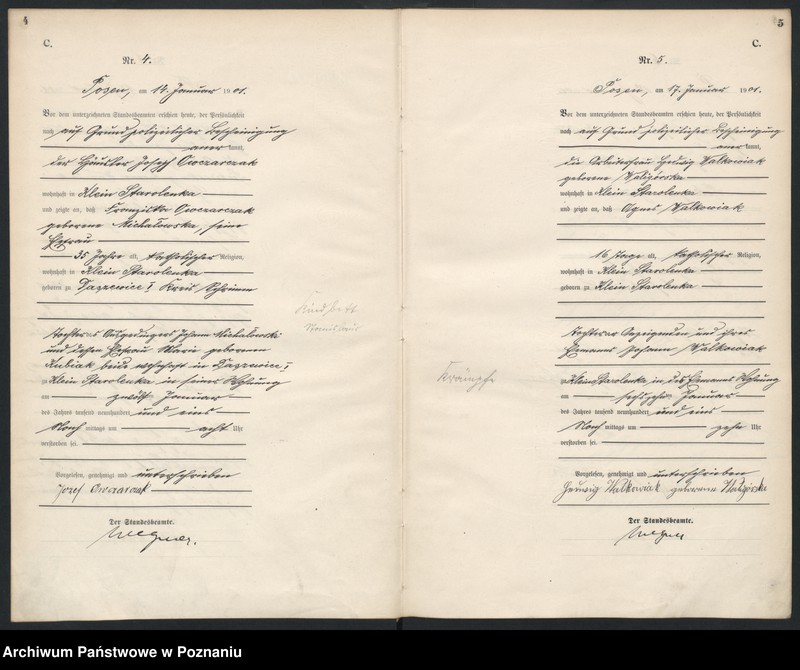 4
C.
Nr. 4.
Posen, am 14. Januar 1901.
Vor dem unterzeichneten Standesbeamten erschien heute, der Persönlichkeit
nach auf Grund polizeilicher Bescheinigung
anerkannt,
der Häusler Joseph Owczarczak
wohnhaft in Klein Starolenka
und zeigte an, daß Franziska Owczarczak
geborene Michałowska, seine
Ehefrau
35 Jahre alt, katholischer Religion,
wohnhaft in Klein Starolenka
geboren zu I Kreis Schrimm
Tochter des Ausgedingers Johann Michałowski
und dessen Ehefrau Marie geborenen
Kubiak beide wohnhaft in I
zu Klein Starolenka in seiner Wohnung
am zwölf Januar
des Jahres tausend neunhundert und eins
Nachmittags um acht Uhr
verstorben sei.
Vorgelesen, genehmigt und unterschrieben
Józef Owczarczak
Der Standesbeamte.
Wegner.
Kindbett
5
C.
Nr. 5.
Posen, am 17. Januar 1901.
Vor dem unterzeichneten Standesbeamten erschien heute, der Persönlichkeit
nach auf Grund polizeilicher Bescheinigung
anerkannt,
die Arbeiterfrau Hedwig Walkowiak
geborene Waligórska
wohnhaft in Klein Starolenka
und zeigte an, daß Agnes Walkowiak
16 Tage alt, katholischer Religion,
wohnhaft in Klein Starolenka
geboren zu Klein Starolenka
Tochter der Anzeigenden und ihres
Ehemannes Johann Walkowiak
zu Klein Starolenka in des Ehemannes Wohnung
am sechszehn Januar
des Jahres tausend neunhundert und eins
Nachmittags um zehn Uhr
verstorben sei.
Vorgelesen, genehmigt und unterschrieben
Hedwig Walkowiak geborene Waligórska
Der Standesbeamte.
Wegner
Krämpfe
Archiwum Państwowe w Poznaniu